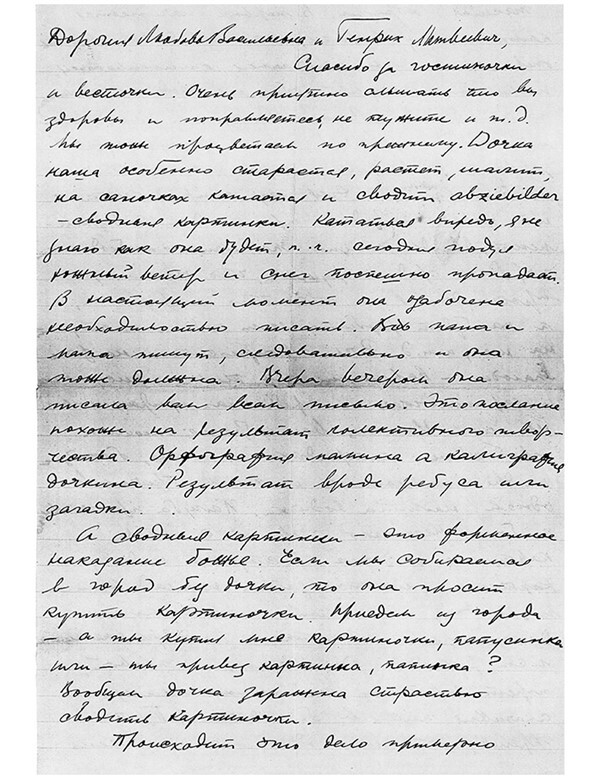 Дорогия Любовь Васильевна и Генрих Матвеевич,
Спасибо за гостиночки
и весточки. Очень приятно слышать что вы
здоровы и поправляетесь, не тужите и т.д.
Мы тоже процветаем по прежнему. Дочка
наша особенно старается, растет, шалит,
на саночках катается и сводит abziebilder
- сводныя картинки. Кататься впредь, я не
знаю как она будет, т.к. сегодня подул
южный ветер и снег поспешно пропадает.
В настоящий момент она озабочена
необходимостью писать. Вот папа и
мама пишут, следовательно и она
тоже должна. Вчера вечером она
писала вам всем письмо. Это послание
похоже на результат колективного твор-
чества. Орфография мамина а калиграфия
дочкина. Результат вроде ребуса или
загадки.
А сводныя картинки - это форменное
наказание божье. Если мы собираемся
в город без дочки, то она просит
купить картиночки. Приедем из города
- а ты купил мне картиночки, папусинка
или - ты привез картинки, папинка?
Вообщем дочка заражена страстью
сводить картиночки.
Происходит это дело примерно